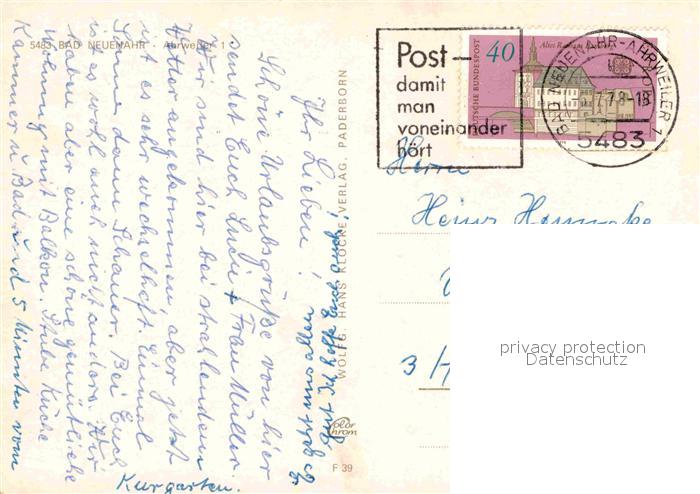 5483 BAD NEUENAHR - Ahrweiler 1
Ihr Lieben!
Schöne Urlaubsgrüße von hier
sendet Euch Luzie + Frau Müller.
Wir sind hier bei strahlendem
Wetter angekommen, aber jetzt
ist es sehr wechselhaft. Einmal
Sonne dann Schauer. Bei Euch
ist es wohl auch nicht anders. Wir
haben aber eine schöne gemütliche
Wohnung mit Balkon. Stube Küche
Kammer u. Bad und 5 Minuten vom
Kurgarten.
Es geht uns allen
gut. Ich hoffe Euch auch.
WOLFG. HANS KLOCKE VERLAG, PADERBORN
color
chrom
F 39
Post -
damit
man
voneinander
hört
40
DEUTSCHE BUNDESPOST
Altes Rathaus
BAD NEUENAHR-AHRWEILER 1
7.8-18
5483
Herrn
Heinz
3 H
privacy protection
Datenschutz